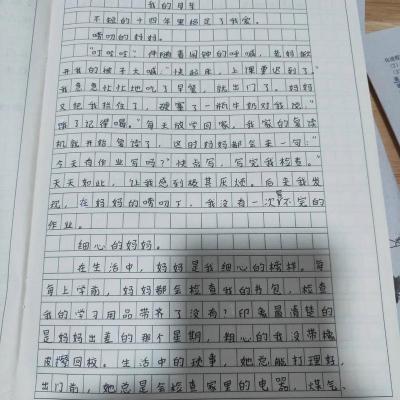 我的母亲
不短的十四年里给足了我爱。
唠叨的妈妈。
"叮咚咚"伴随着闹钟的呼喊，老妈掀
开我的被子大喊"快起床，上课要迟到了。"
我急急忙忙地吃了早餐，就出门了。妈妈
又把我拦住了，硬塞了一瓶牛奶对我说"
饿了记得喝。"每天放学回家，我家的复读
机就开始复读了，这时妈妈都会来一句："
今天有作业写吗？"快点写，写完我检查。"
天天如此，让我感到极其厌烦。后来我发
现，在妈妈的唠叨下，我没有一次写不完的
作业。
细心的妈妈。
在生活中，妈妈是我细心的榜样。每
每上学前，妈妈都会检查我的书包，检查
我的学习用品带齐了没有？印象最清楚的
是妈妈出差的那个星期，粗心的我没带橡
皮擦回校。生活中的琐事，她总能打理好。
出门前，她总是会检查家里的电器，煤气、